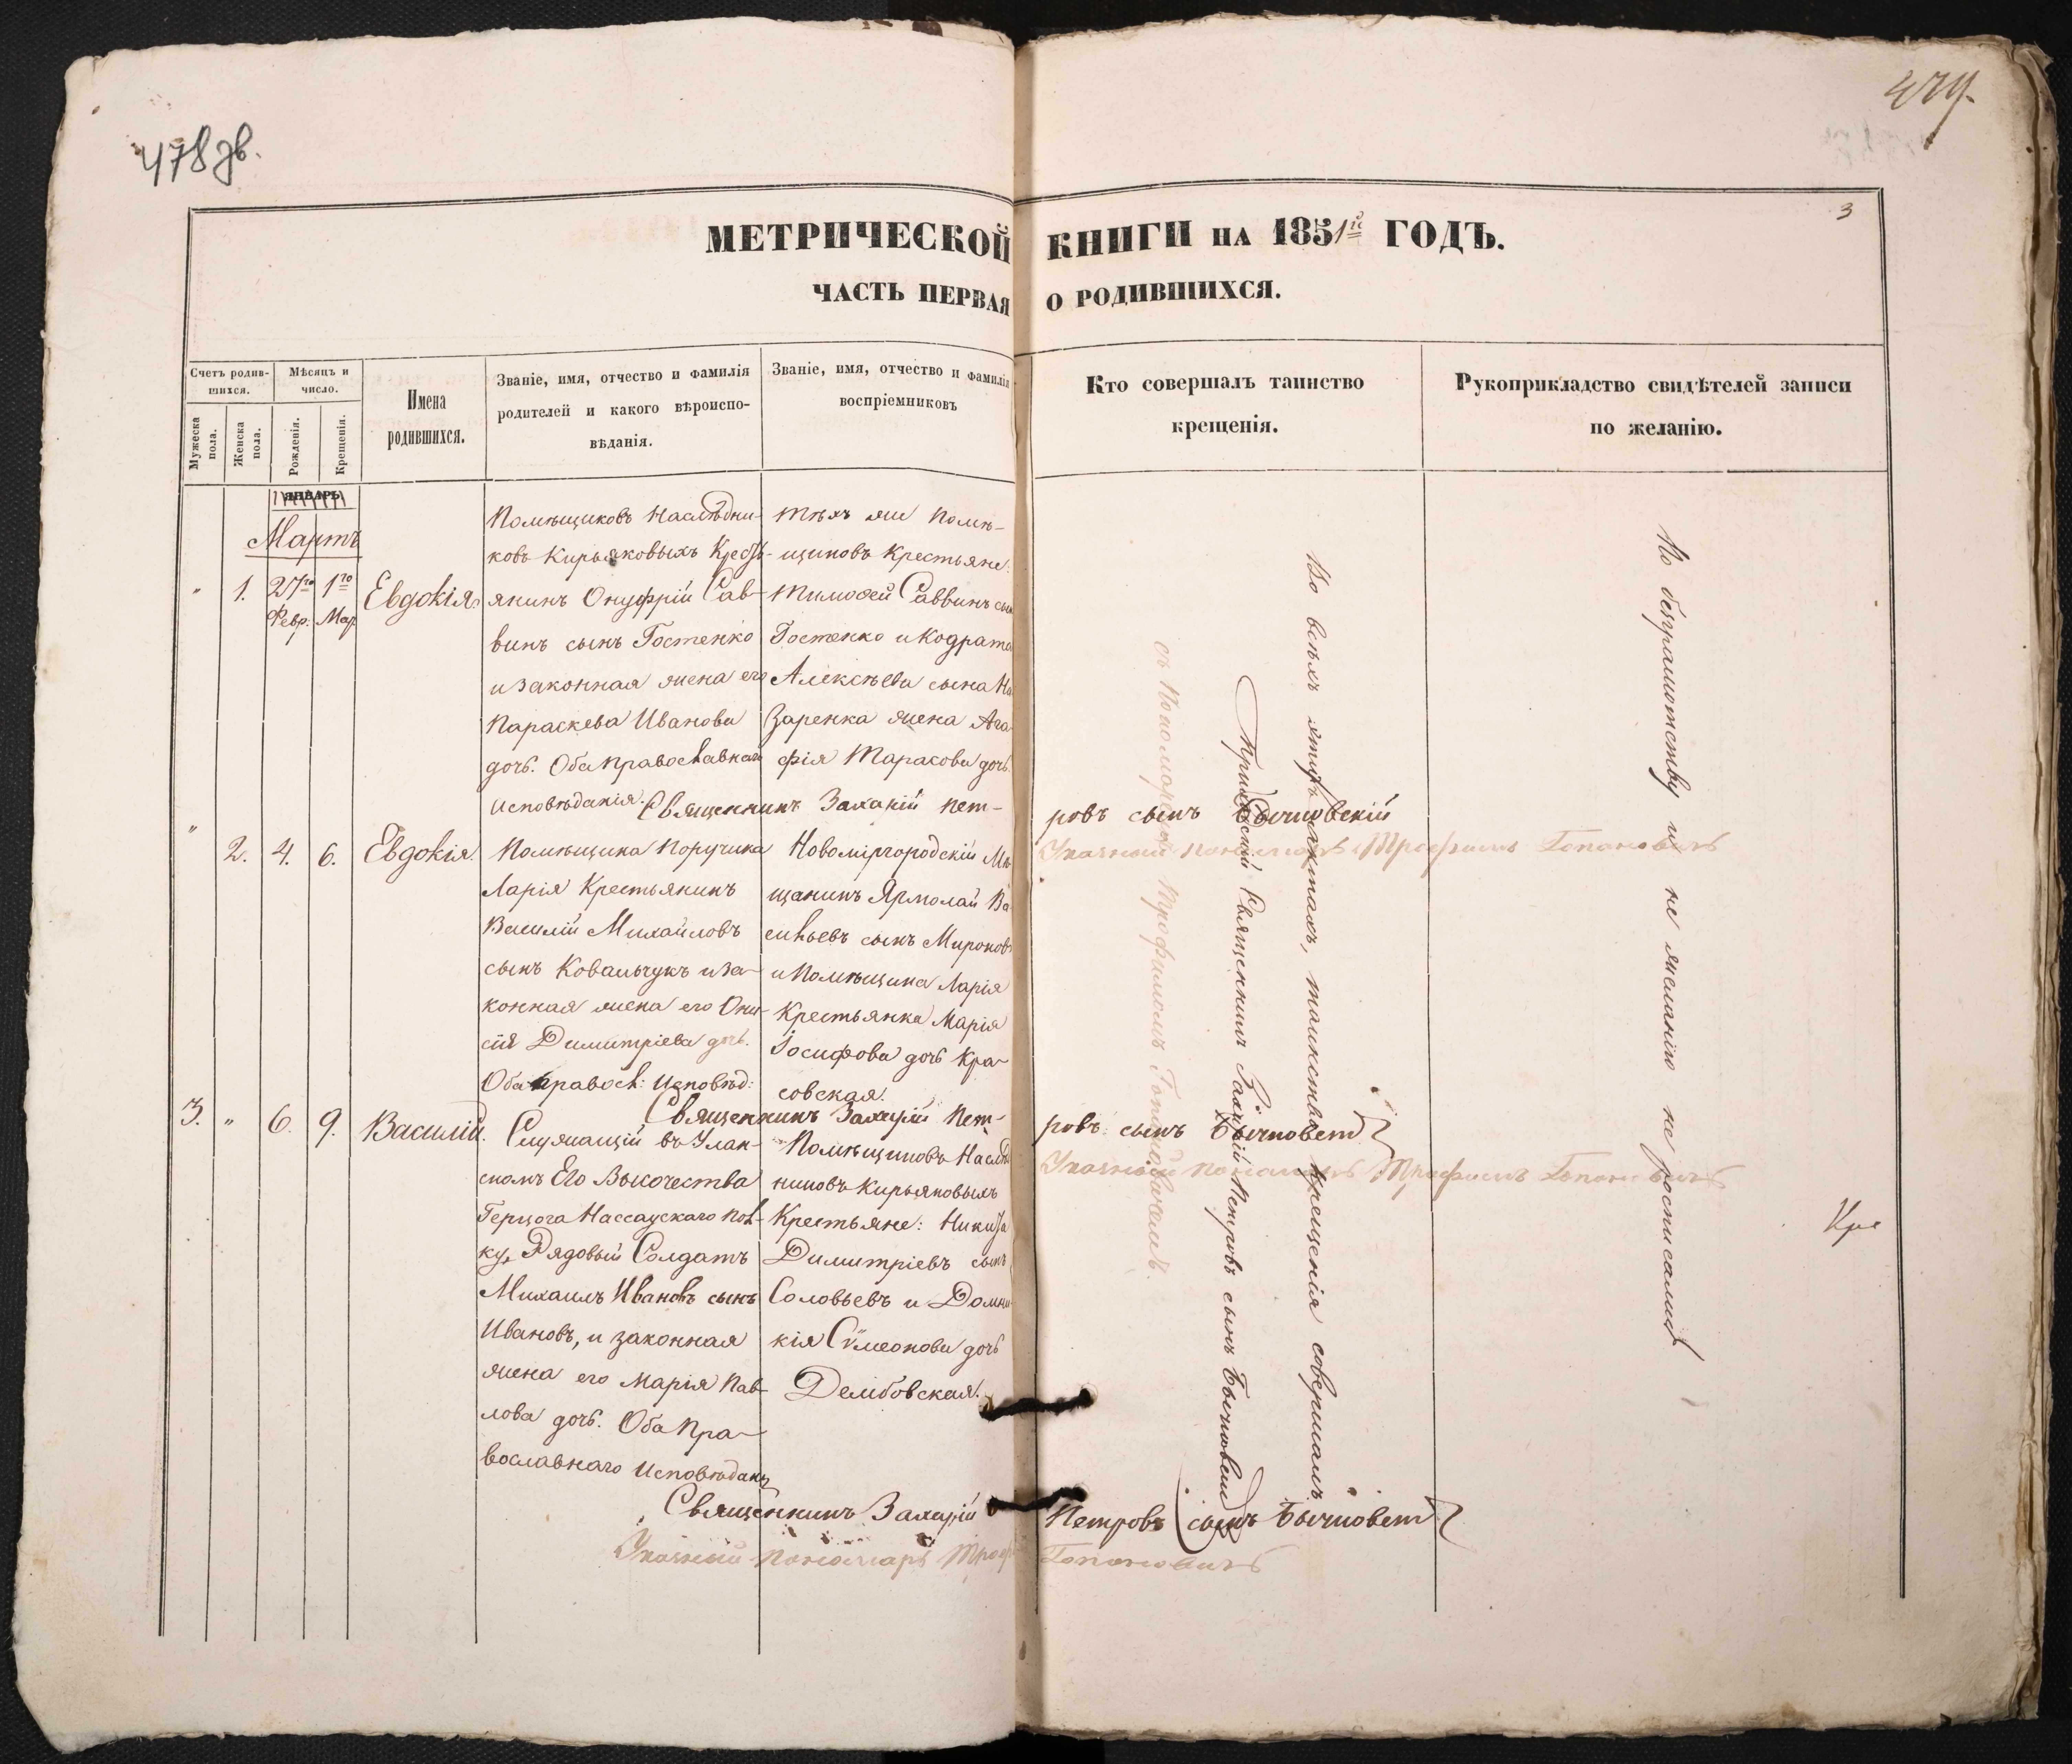 478 зв.
479.
3
МЕТРИЧЕСКОЙ КНИГИ НА 1851й ГОДЪ.
ЧАСТЬ ПЕРВАЯ О РОДИВШИХСЯ.
Счетъ родив-
шихся.
Мужеска пола.
Женска пола.
Мѣсяцъ и
число.
Рожденія.
Крещенія.
Имена
родившихся.
Званіе, имя, отчество и фамилія
родителей и какого вѣроиспо-
вѣданія.
Званіе, имя, отчество и фамилія
воспріемниковъ
Кто совершалъ таинство
крещенія.
Рукоприкладство свидѣтелей записи
по желанію.
ЯНВАРЬ
Мартъ
" 1. 27го Февр. 1го Мар Евдокія.
Помѣщиковъ Наслѣдни-
ковъ Кирьяковыхъ Кресть-
янинъ Онуфрій Сав-
винъ сынъ Гостенко
и законная жена его
Параскева Иванова
дочь. Оба православнаго
исповѣданія.
Тѣхъ же Помѣ-
щиковъ Крестьяне:
Тимофей Саввинъ сын
Гостенко и Кодрата
Алексѣева сына На
заренка жена Ага
фія Тарасова дочь.
Священникъ Захарій Пет-
ровъ сынъ Бычковскій
Указный пономарь Трофимъ Гопановичъ
" 2. 4. 6. Евдокія.
Помѣщика Поручика
Ларія Крестьянинъ
Василій Михайловъ
сынъ Ковальчукъ и за-
конная жена его Они-
сія Димитріева дочь.
Оба правосл: исповѣд:
Новомиргородскій Мѣ
щанинъ Ярмолай Ва
сильевъ сынъ Мироновъ
и Помѣщика Ларія
Крестьянка Марія
Іосифова дочь Кра-
совская.
Священникъ Захарій Пет-
ровъ сынъ Бычковскій
Указный пономарь Трофимъ Гопановичъ
3. " 6. 9. Василій.
Служащій въ Улан-
скомъ Его Высочества
Герцога Нассаускаго пол-
ку, Рядовый Солдатъ
Михаилъ Ивановъ сынъ
Ивановъ, и законная
жена его Марія Пав-
лова дочь. Оба Пра-
вославнаго исповѣдан
Помѣщиковъ Наслѣд
никовъ Кирьяковыхъ
Крестьяне: Никита
Димитріевъ сынъ
Соловьевъ и Домни
кія Сѵмеонова дочь
Дембовская.
Священникъ Захарій Петровъ сынъ Бычковскій
Указный пономарь Троф Гопановичъ
Во всѣхъ этихъ актахъ, таинство крещенія совершалъ
Приходскій Священникъ Захарій Петровъ сынъ Бычковскій
съ Пономаремъ Трофимомъ Гопановичемъ.
По безграмотству и не желанію не росписались
Кре